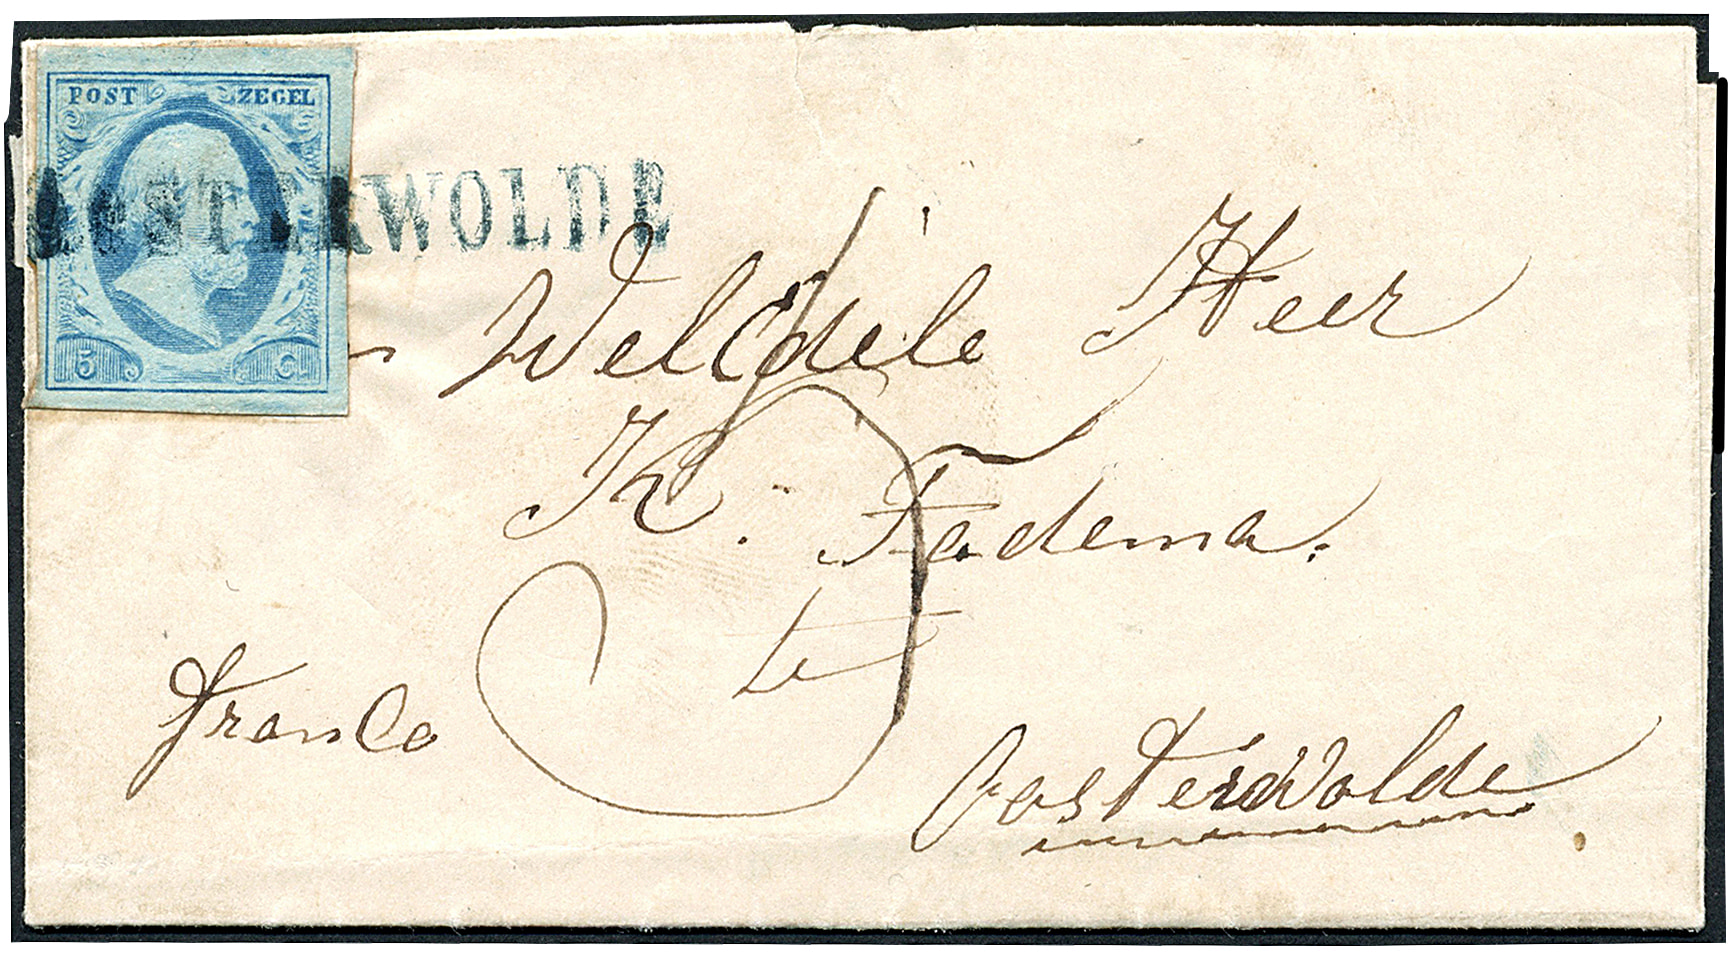 POST ZEGEL
5 Ct
OOSTERWOLDE
Weledele Heer
K. Fadema.
te
franco
Oosterwolde